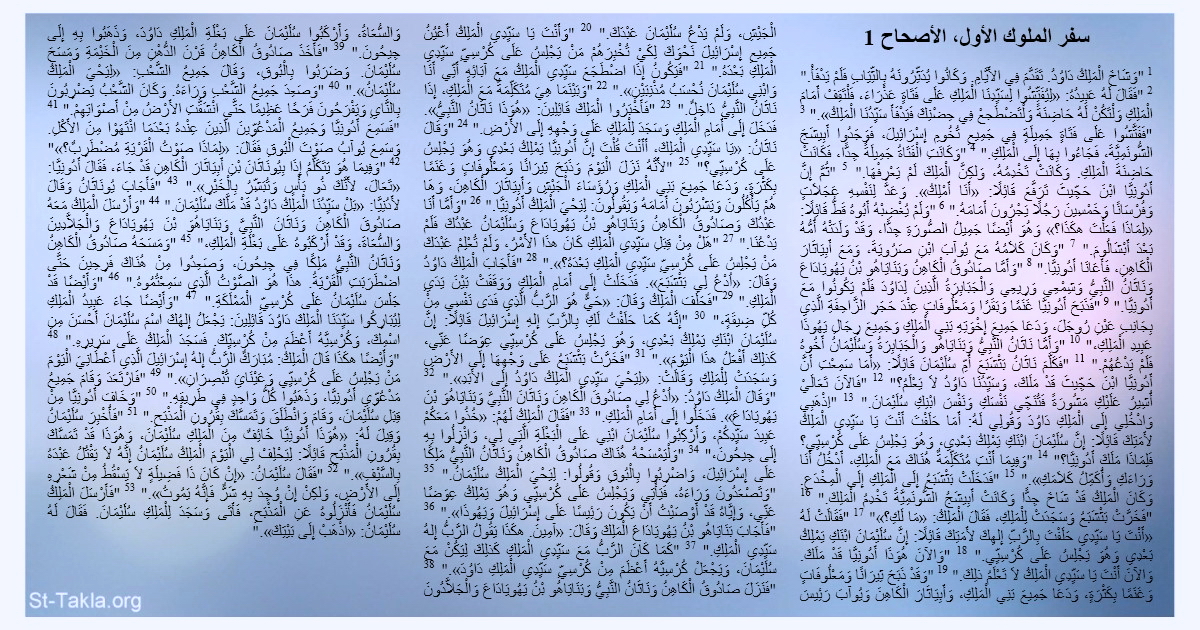 سفر الملوك الأول، الأصحاح 1
1 "وَشَاخَ الْمَلِكُ دَاوُدُ. تَقَدَّمَ فِي الأَيَّامِ. وَكَانُوا يُدَثِّرُونَهُ بِالثِّيَابِ فَلَمْ يَدْفَأْ."
2 "فَقَالَ لَهُ عَبِيدُهُ: «لِيُفَتِّشُوا لِسَيِّدِنَا الْمَلِكِ عَلَى فَتَاةٍ عَذْرَاءَ، فَلْتَقِفْ أَمَامَ
الْمَلِكِ وَلْتَكُنْ لَهُ حَاضِنَةً وَلْتَضْطَجعْ فِي حِضْنِكَ فَيَدْفَأَ سَيِّدُنَا الْمَلِكُ»." 3
"فَفَتَّشُوا عَلَى فَتَاةٍ جَمِيلَةٍ فِي جَمِيعِ تُخُومِ إِسْرَائِيلَ، فَوَجَدُوا أَبِيشَجَ
الشُّونَمِيَّةَ، فَجَاءُوا بِهَا إِلَى الْمَلِكِ." 4 "وَكَانَتِ الْفَتَاةُ جَمِيلَةً جِدًّا، فَكَانَتْ
حَاضِنَةَ الْمَلِكِ. وَكَانَتْ تَخْدِمُهُ، وَلكِنَّ الْمَلِكَ لَمْ يَعْرِفْهَا." 5 "ثُمَّ إِنَّ
أَدُونِيَّا ابْنَ حَجِّيثَ تَرَفَّعَ قَائِلًا: «أَنَا أَمْلِكُ». وَعَدَّ لِنَفْسِهِ عَجَلاَتٍ
وَفُرْسَانًا وَخَمْسِينَ رَجُلًا يَجْرُونَ أَمَامَهُ." 6 "وَلَمْ يُغْضِبْهُ أَبُوهُ قَطُّ قَائِلًا:
«لِمَاذَا فَعَلْتَ هكَذَا؟» وَهُوَ أَيْضًا جَمِيلُ الصُّورَةِ جِدًّا، وَقَدْ وَلَدَتْهُ أُمُّهُ
بَعْدَ أَبْشَالُومَ." 7 "وَكَانَ كَلاَمُهُ مَعَ يُوآبَ ابْنِ صَرُويَةَ، وَمَعَ أَبِيَاثَارَ
الْكَاهِنِ، فَأَعَانَا أَدُونِيَّا." 8 "وَأَمَّا صَادُوقُ الْكَاهِنُ وَبَنَايَاهُو بْنُ يَهُويَادَاعَ
وَنَاثَانُ النَّبِيُّ وَشِمْعِي وَرِيعِي وَالْجَبَابِرَةُ الَّذِينَ لِدَاوُدَ فَلَمْ يَكُونُوا مَعَ
أَدُونِيَّا." 9 "فَذَبَحَ أَدُونِيَّا غَنَمًا وَبَقَرًا وَمَعْلُوفَاتٍ عِنْدَ حَجَرِ الزَّاحِفَةِ الَّذِي
بِجَانِبِ عَيْنِ رُوجَلَ، وَدَعَا جَمِيعَ إِخْوَتِهِ بَنِي الْمَلِكِ وَجَمِيعَ رِجَالِ يَهُوذَا
عَبِيدِ الْمَلِكِ،" 10 "وَأَمَّا نَاثَانُ النَّبِيُّ وَبَنَايَاهُو وَالْجَبَابِرَةُ وَسُلَيْمَانُ أَخُوهُ
فَلَمْ يَدْعُهُمْ." 11 "فَكَلَّمَ نَاثَانُ بَثْشَبَعَ أُمَّ سُلَيْمَانَ قَائِلًا: «أَمَا سَمِعْتِ أَنَّ
أَدُونِيَّا ابْنَ حَجِّيثَ قَدْ مَلَكَ، وَسَيِّدُنَا دَاوُدُ لاَ يَعْلَمُ؟" 12 "فَالآنَ تَعَالَيْ
أُشِيرُ عَلَيْكِ مَشُورَةً فَتُنَجِّي نَفْسَكِ وَنَفْسَ ابْنِكِ سُلَيْمَانَ." 13 "اِذْهَبِي
وَادْخُلِي إِلَى الْمَلِكِ دَاوُدَ وَقُولِي لَهُ: أَمَا حَلَفْتَ أَنْتَ يَا سَيِّدِي الْمَلِكُ
لأَمَتِكَ قَائِلًا: إِنَّ سُلَيْمَانَ ابْنَكِ يَمْلِكُ بَعْدِي، وَهُوَ يَجْلِسُ عَلَى كُرْسِيِّي؟
فَلِمَاذَا مَلَكَ أَدُونِيَّا؟" 14 "وَفِيمَا أَنْتِ مُتَكَلِّمَةٌ هُنَاكَ مَعَ الْمَلِكِ، أَدْخُلُ أَنَا
وَرَاءَكِ وَأُكَمِّلُ كَلاَمَكِ»." 15 "فَدَخَلَتْ بَثْشَبَعُ إِلَى الْمَلِكِ إِلَى الْمِخْدَعِ.
وَكَانَ الْمَلِكُ قَدْ شَاخَ جِدًّا وَكَانَتْ أَبِيشَجُ الشُّونَمِيَّةُ تَخْدِمُ الْمَلِكَ." 16
"فَخَرَّتْ بَثْشَبَعُ وَسَجَدَتْ لِلْمَلِكِ، فَقَالَ الْمَلِكُ: «مَا لَكِ؟»" 17 "فَقَالَتْ لَهُ:
«أَنْتَ يَا سَيِّدِي حَلَفْتَ بِالرَّبِّ إِلهِكَ لأَمَتِكَ قَائِلًا: إِنَّ سُلَيْمَانَ ابْنَكِ يَمْلِكُ
بَعْدِي وَهُوَ يَجْلِسُ عَلَى كُرْسِيِّي." 18 "وَالآنَ هُوَذَا أَدُونِيَّا قَدْ مَلَكَ.
وَالآنَ أَنْتَ يَا سَيِّدِي الْمَلِكُ لاَ تَعْلَمُ ذلِكَ." 19 "وَقَدْ ذَبَحَ ثِيرَانًا وَمَعْلُوفَاتٍ
وَغَنَمًا بِكَثْرَةٍ، وَدَعَا جَمِيعَ بَنِي الْمَلِكِ، وَأَبِيَاثَارَ الْكَاهِنَ وَيُوآبَ رَئِيسَ
الْجَيْشِ، وَلَمْ يَدْعُ سُلَيْمَانَ عَبْدَكَ." 20 "وَأَنْتَ يَا سَيِّدِي الْمَلِكُ أَعْيُنُ
جَمِيعِ إِسْرَائِيلَ نَحْوَكَ لِكَيْ تُخْبِرَهُمْ مَنْ يَجْلِسُ عَلَى كُرْسِيِّ سَيِّدِي
الْمَلِكِ بَعْدَهُ." 21 "فَيَكُونُ إِذَا اضْطَجَعَ سَيِّدِي الْمَلِكُ مَعَ آبَائِهِ أَنِّي أَنَا
وَابْنِي سُلَيْمَانَ نُحْسَبُ مُذْنِبَيْنِ»." 22 "وَبَيْنَمَا هِيَ مُتَكَلِّمَةٌ مَعَ الْمَلِكِ، إِذَا
نَاثَانُ النَّبِيُّ دَاخِلٌ." 23 "فَأَخْبَرُوا الْمَلِكَ قَائِلِينَ: «هُوَذَا نَاثَانُ النَّبِيُّ».
فَدَخَلَ إِلَى أَمَامِ الْمَلِكِ وَسَجَدَ لِلْمَلِكِ عَلَى وَجْهِهِ إِلَى الأَرْضِ." 24 "وَقَالَ
نَاثَانُ: «يَا سَيِّدِي الْمَلِكَ، أَأَنْتَ قُلْتَ: إِنَّ أَدُونِيَّا يَمْلِكُ بَعْدِي وَهُوَ يَجْلِسُ
عَلَى كُرْسِيِّي؟" 25 "لأَنَّهُ نَزَلَ الْيَوْمَ وَذَبَحَ ثِيرَانًا وَمَعْلُوفَاتٍ وَغَنَمًا
بِكَثْرَةٍ، وَدَعَا جَمِيعَ بَنِي الْمَلِكِ وَرُؤَسَاءَ الْجَيْشِ وَأَبِيَاثَارَ الْكَاهِنَ، وَهَا
هُمْ يَأْكُلُونَ وَيَشْرَبُونَ أَمَامَهُ وَيَقُولُونَ: لِيَحْيَ الْمَلِكُ أَدُونِيَّا." 26 "وَأَمَّا أَنَا
عَبْدُكَ وَصَادُوقُ الْكَاهِنُ وَبَنَايَاهُو بْنُ يَهُويَادَاعَ وَسُلَيْمَانُ عَبْدُكَ فَلَمْ
يَدْعُنَا." 27 "هَلْ مِنْ قِبَلِ سَيِّدِي الْمَلِكِ كَانَ هذَا الأَمْرُ، وَلَمْ تُعْلِمْ عَبْدَكَ
مَنْ يَجْلِسُ عَلَى كُرْسِيِّ سَيِّدِي الْمَلِكِ بَعْدَهُ؟»." 28 "فَأَجَابَ الْمَلِكُ دَاوُدُ
وَقَالَ: «اُدْعُ لِي بَثْشَبَعَ». فَدَخَلَتْ إِلَى أَمَامِ الْمَلِكِ وَوَقَفَتْ بَيْنَ يَدَيِ
الْمَلِكِ." 29 "فَحَلَفَ الْمَلِكُ وَقَالَ: «حَيٌّ هُوَ الرَّبُّ الَّذِي فَدَى نَفْسِي مِنْ
كُلِّ ضِيقَةٍ،" 30 "إِنَّهُ كَمَا حَلَفْتُ لَكِ بِالرَّبِّ إِلهِ إِسْرَائِيلَ قَائِلًا: إِنَّ
سُلَيْمَانَ ابْنَكِ يَمْلِكُ بَعْدِي، وَهُوَ يَجْلِسُ عَلَى كُرْسِيِّي عِوَضًا عَنِّي،
كَذلِكَ أَفْعَلُ هذَا الْيَوْمَ»." 31 "فَخَرَّتْ بَثْشَبَعُ عَلَى وَجْهِهَا إِلَى الأَرْضِ
وَسَجَدَتْ لِلْمَلِكِ وَقَالَتْ: «لِيَحْيَ سَيِّدِي الْمَلِكُ دَاوُدُ إِلَى الأَبَدِ»." 32
"وَقَالَ الْمَلِكُ دَاوُدُ: «اُدْعُ لِي صَادُوقَ الْكَاهِنَ وَنَاثَانَ النَّبِيَّ وَبَنَايَاهُوَ بْنَ
يَهُويَادَاعَ». فَدَخَلُوا إِلَى أَمَامِ الْمَلِكِ." 33 "فَقَالَ الْمَلِكُ لَهُمْ: «خُذُوا مَعَكُمْ
عَبِيدَ سَيِّدِكُمْ، وَأَرْكِبُوا سُلَيْمَانَ ابْنِي عَلَى الْبَغْلَةِ الَّتِي لِي، وَانْزِلُوا بِهِ
إِلَى جِيحُونَ،" 34 "وَلْيَمْسَحْهُ هُنَاكَ صَادُوقُ الْكَاهِنُ وَنَاثَانُ النَّبِيُّ مَلِكًا
عَلَى إِسْرَائِيلَ، وَاضْرِبُوا بِالْبُوقِ وَقُولُوا: لِيَحْيَ الْمَلِكُ سُلَيْمَانُ." 35
"وَتَصْعَدُونَ وَرَاءَهُ، فَيَأْتِي وَيَجْلِسُ عَلَى كُرْسِيِّي وَهُوَ يَمْلِكُ عِوَضًا
عَنِّي، وَإِيَّاهُ قَدْ أَوْصَيْتُ أَنْ يَكُونَ رَئِيسًا عَلَى إِسْرَائِيلَ وَيَهُوذَا»." 36
"فَأَجَابَ بَنَايَاهُو بْنُ يَهُويَادَاعَ الْمَلِكَ وَقَالَ: «آمِينَ. هكَذَا يَقُولُ الرَّبُّ إِلهُ
سَيِّدِي الْمَلِكِ." 37 "كَمَا كَانَ الرَّبُّ مَعَ سَيِّدِي الْمَلِكِ كَذلِكَ لِيَكُنْ مَعَ
سُلَيْمَانَ، وَيَجْعَلْ كُرْسِيَّهُ أَعْظَمَ مِنْ كُرْسِيِّ سَيِّدِي الْمَلِكِ دَاوُدَ»." 38
"فَنَزَلَ صَادُوقُ الْكَاهِنُ وَنَاثَانُ النَّبِيُّ وَبَنَايَاهُو بْنُ يَهُويَادَاعَ وَالْجَلاَّدُونَ
وَالسُّعَاةُ، وَأَرْكَبُوا سُلَيْمَانَ عَلَى بَغْلَةِ الْمَلِكِ دَاوُدَ، وَذَهَبُوا بِهِ إِلَى
جِيحُونَ." 39 "فَأَخَذَ صَادُوقُ الْكَاهِنُ قَرْنَ الدُّهْنِ مِنَ الْخَيْمَةِ وَمَسَحَ
سُلَيْمَانَ. وَضَرَبُوا بِالْبُوقِ، وَقَالَ جَمِيعُ الشَّعْبِ: «لِيَحْيَ الْمَلِكُ
سُلَيْمَانُ»." 40 "وَصَعِدَ جَمِيعُ الشَّعْبِ وَرَاءَهُ. وَكَانَ الشَّعْبُ يَضْرِبُونَ
بِالنَّايِ وَيَفْرَحُونَ فَرَحًا عَظِيمًا حَتَّى انْشَقَّتِ الأَرْضُ مِنْ أَصْوَاتِهِمْ." 41
"فَسَمِعَ أَدُونِيَّا وَجَمِيعُ الْمَدْعُوِّينَ الَّذِينَ عِنْدَهُ بَعْدَمَا انْتَهَوْا مِنَ الأَكْلِ.
وَسَمِعَ يُوآبُ صَوْتَ الْبُوقِ فَقَالَ: «لِمَاذَا صَوْتُ الْقَرْيَةِ مُضْطَرِبٌ؟»"
42 "وَفِيمَا هُوَ يَتَكَلَّمُ إِذَا بِيُونَاثَانَ بْنِ أَبِيَاثَارَ الْكَاهِنِ قَدْ جَاءَ، فَقَالَ أَدُونِيَّا:
«تَعَالَ، لأَنَّكَ ذُو بَأْسٍ وَتُبَشِّرُ بِالْخَيْرِ»." 43 "فَأَجَابَ يُونَاثَانُ وَقَالَ
لأَدُنِيَّا: «بَلْ سَيِّدُنَا الْمَلِكُ دَاوُدُ قَدْ مَلَّكَ سُلَيْمَانَ." 44 "وَأَرْسَلَ الْمَلِكُ مَعَهُ
صَادُوقَ الْكَاهِنَ وَنَاثَانَ النَّبِيَّ وَبَنَايَاهُوَ بْنَ يَهُويَادَاعَ وَالْجَلاَّدِينَ
وَالسُّعَاةَ، وَقَدْ أَرْكَبُوهُ عَلَى بَغْلَةِ الْمَلِكِ،" 45 "وَمَسَحَهُ صَادُوقُ الْكَاهِنُ
وَنَاثَانُ النَّبِيُّ مَلِكًا فِي جِيحُونَ، وَصَعِدُوا مِنْ هُنَاكَ فَرِحِينَ حَتَّى
اضْطَرَبَتِ الْقَرْيَةُ. هذَا هُوَ الصَّوْتُ الَّذِي سَمِعْتُمُوهُ." 46 "وَأَيْضًا قَدْ
جَلَسَ سُلَيْمَانُ عَلَى كُرْسِيِّ الْمَمْلَكَةِ." 47 "وَأَيْضًا جَاءَ عَبِيدُ الْمَلِكِ
لِيُبَارِكُوا سَيِّدَنَا الْمَلِكَ دَاوُدَ قَائِلِينَ: يَجْعَلُ إِلهُكَ اسْمَ سُلَيْمَانَ أَحْسَنَ مِنِ
اسْمِكَ، وَكُرْسِيَّهُ أَعْظَمَ مِنْ كُرْسِيِّكَ. فَسَجَدَ الْمَلِكُ عَلَى سَرِيرِهِ." 48
"وَأَيْضًا هكَذَا قَالَ الْمَلِكُ: مُبَارَكٌ الرَّبُّ إِلهُ إِسْرَائِيلَ الَّذِي أَعْطَانِيَ الْيَوْمَ
مَنْ يَجْلِسُ عَلَى كُرْسِيِّي وَعَيْنَايَ تُبْصِرَانِ»." 49 "فَارْتَعَدَ وَقَامَ جَمِيعُ
مَدْعُوِّي أَدُونِيَّا، وَذَهَبُوا كُلُّ وَاحِدٍ فِي طَرِيقِهِ." 50 "وَخَافَ أَدُونِيَّا مِنْ
قِبَلِ سُلَيْمَانَ، وَقَامَ وَانْطَلَقَ وَتَمَسَّكَ بِقُرُونِ الْمَذْبَحِ." 51 "فَأُخْبِرَ سُلَيْمَانُ
وَقِيلَ لَهُ: «هُوَذَا أَدُونِيَّا خَائِفٌ مِنَ الْمَلِكِ سُلَيْمَانَ، وَهُوَذَا قَدْ تَمَسَّكَ
بِقُرُونِ الْمَذْبَحِ قَائِلًا: لِيَحْلِفْ لِي الْيَوْمَ الْمَلِكُ سُلَيْمَانُ إِنَّهُ لاَ يَقْتُلُ عَبْدَهُ
بِالسَّيْفِ»." 52 "فَقَالَ سُلَيْمَانُ: «إِنْ كَانَ ذَا فَضِيلَةٍ لاَ يَسْقُطُ مِنْ شَعْرِهِ
إِلَى الأَرْضِ، وَلكِنْ إِنْ وُجِدَ بِهِ شَرٌّ فَإِنَّهُ يَمُوتُ»." 53 "فَأَرْسَلَ الْمَلِكُ
سُلَيْمَانُ فَأَنْزَلُوهُ عَنِ الْمَذْبَحِ، فَأَتَى وَسَجَدَ لِلْمَلِكِ سُلَيْمَانَ. فَقَالَ لَهُ
سُلَيْمَانُ: «اذْهَبْ إِلَى بَيْتِكَ»."
St-Takla.org